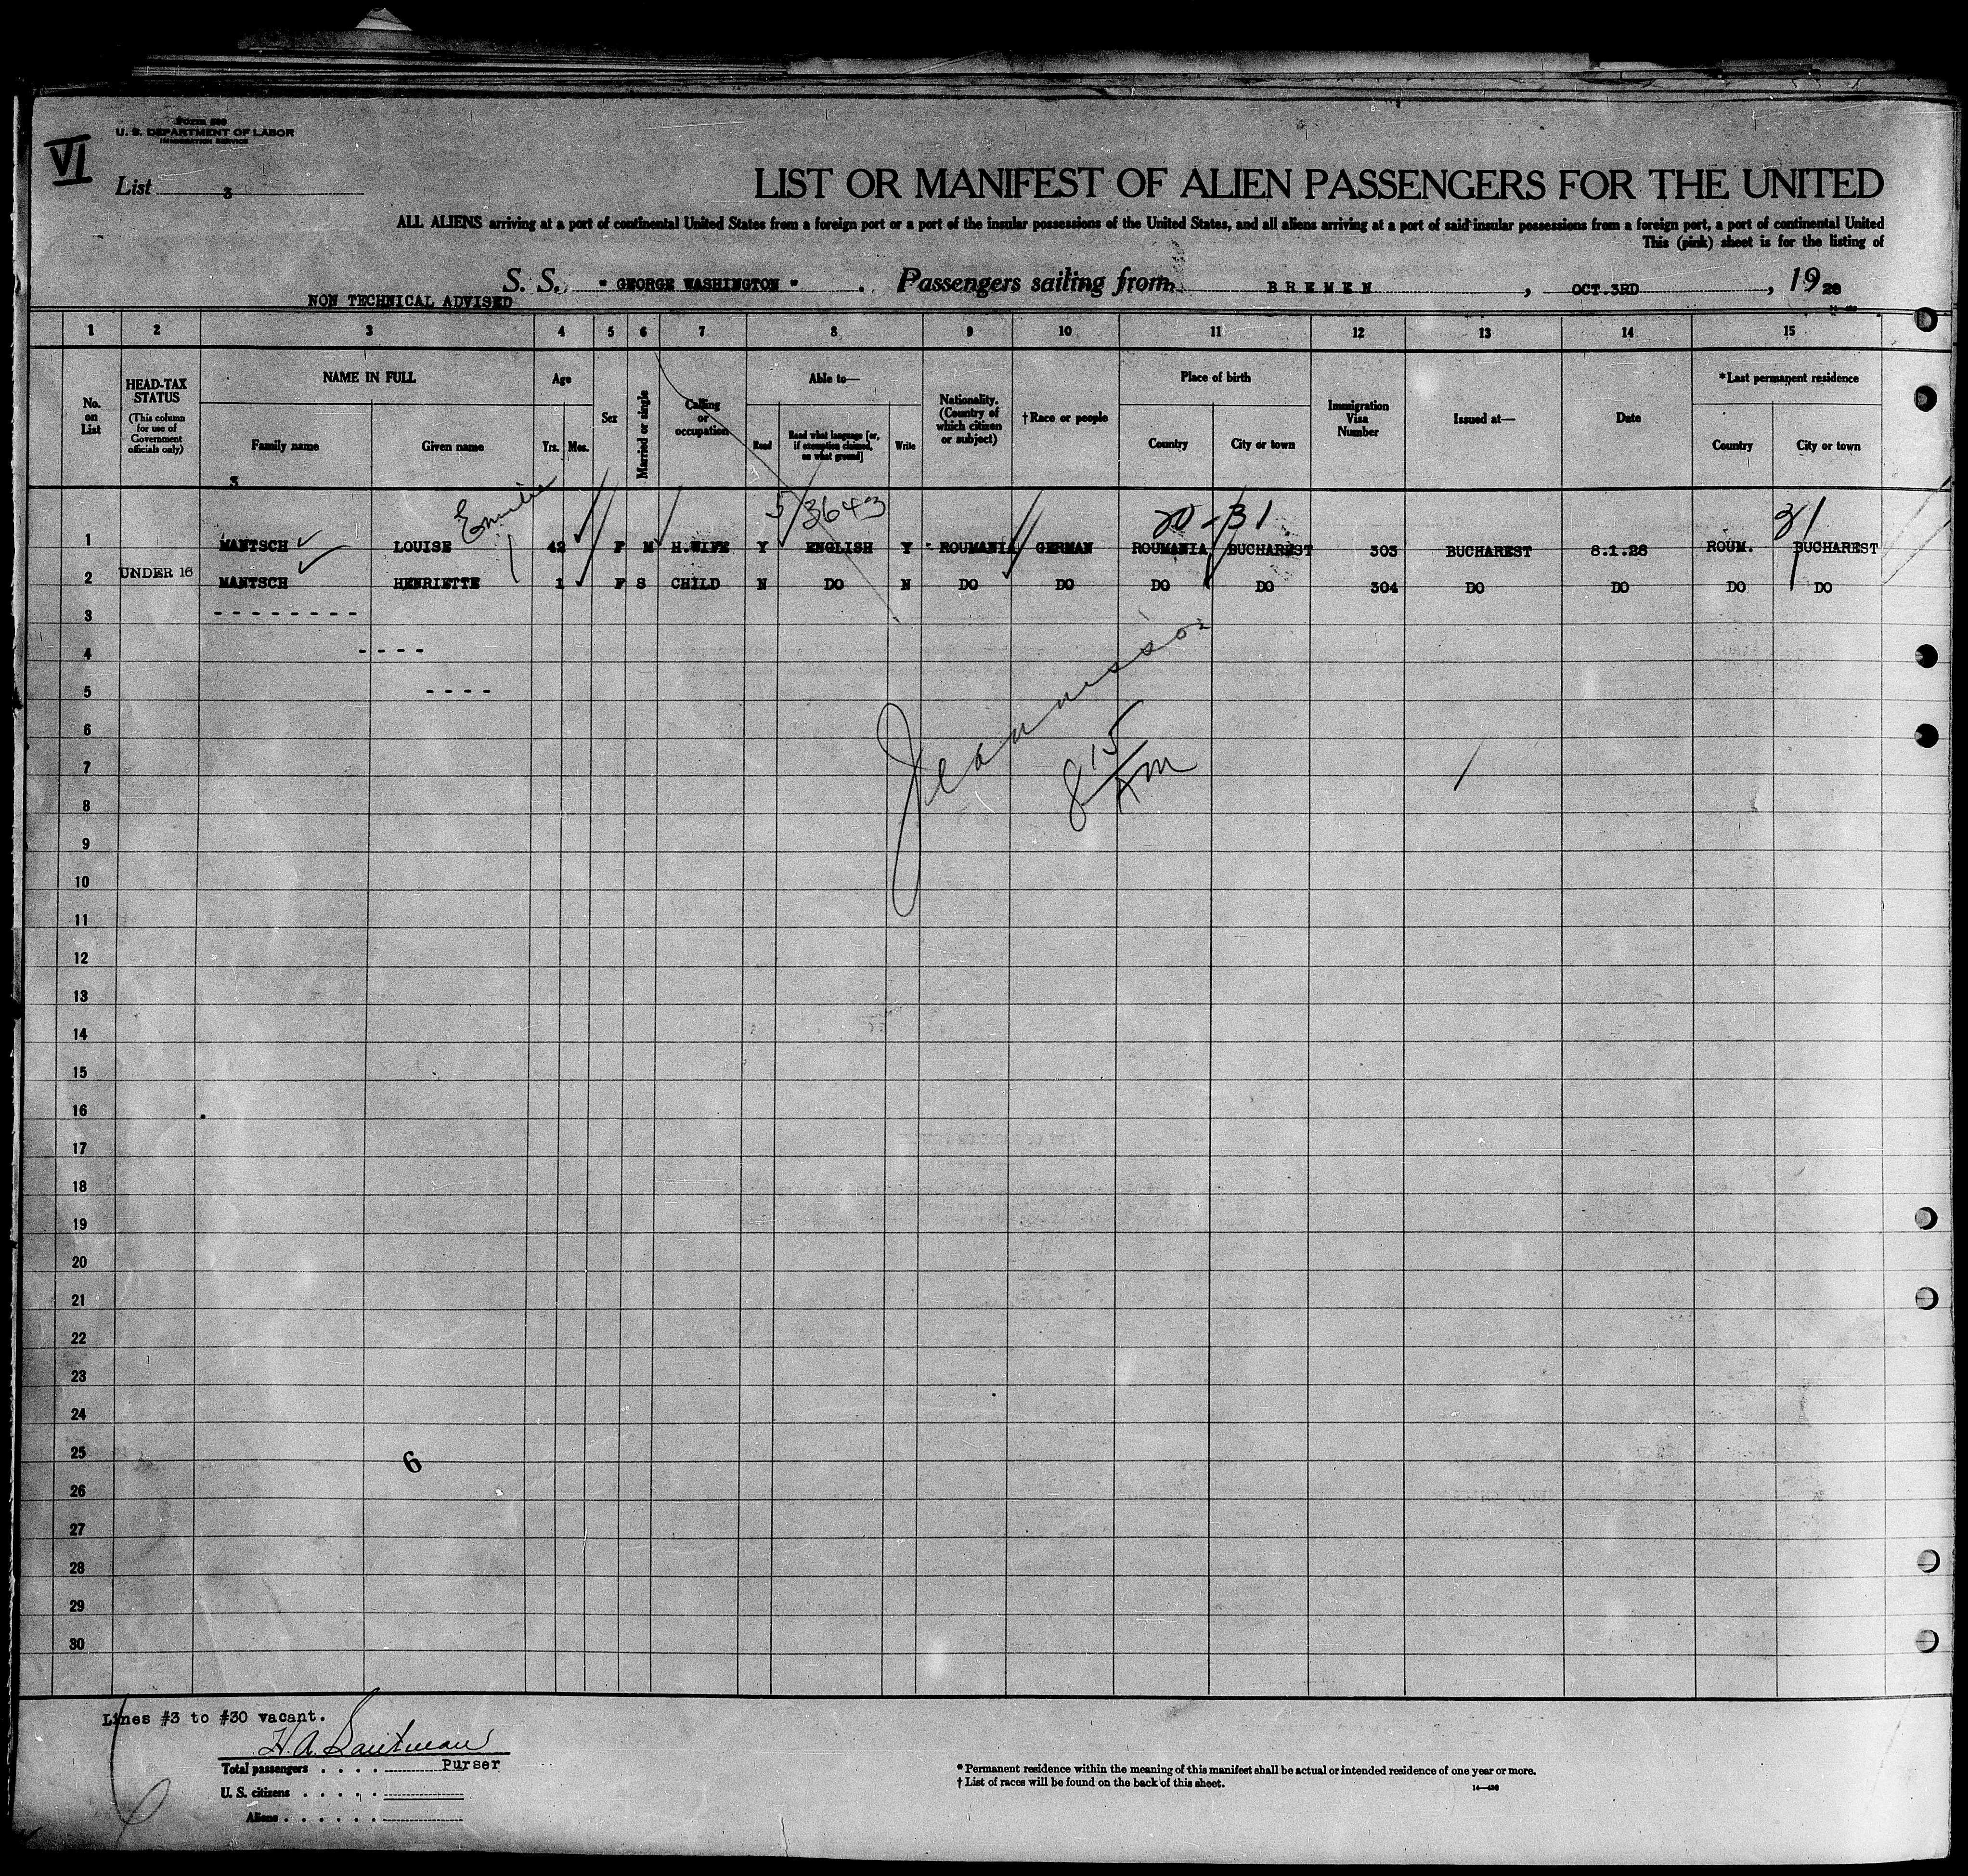 Form 500
U. S. DEPARTMENT OF LABOR
IMMIGRATION SERVICE
VI
List 3
LIST OR MANIFEST OF ALIEN PASSENGERS FOR THE UNITED
ALL ALIENS arriving at a port of continental United States from a foreign port or a port of the insular possessions of the United States, and all aliens arriving at a port of said insular possessions from a foreign port, a port of continental United
This (pink) sheet is for the listing of
S. S. " GEORGE WASHINGTON " . Passengers sailing from BREMEN , OCT.3RD , 1928
NON TECHNICAL ADVISED
1 2 3 4 5 6 7 8 9 10 11 12 13 14 15
No. on List
HEAD-TAX STATUS (This column for use of Government officials only)
NAME IN FULL Family name Given name
Age Yrs. Mos.
Sex
Married or single
Calling or occupation
Able to— Read Read what language [or, if exemption claimed, on what ground] Write
Nationality. (Country of which citizen or subject)
†Race or people
Place of birth Country City or town
Immigration Visa Number
Issued at—
Date
*Last permanent residence Country City or town
3
Emilie 5/3643 20-31 31
1 MANTSCH LOUISE 42 F M H.WIFE Y ENGLISH Y ROUMANIA GERMAN ROUMANIA BUCHAREST 303 BUCHAREST 8.1.28 ROUM. BUCHAREST
2 UNDER 16 MANTSCH HENRIETTE 1 F S CHILD N DO N DO DO DO DO 304 DO DO DO DO
3 - - - - - - - -
4 - - - -
5 - - - -
6
7
8 8 15 AM
9
10
11
12
13
14
15
16
17
18
19
20
21
22
23
24
25 6
26
27
28
29
30
Lines #3 to #30 vacant.
Purser
Total passengers . . . .
U. S. citizens . . . . .
Aliens . . . . . .
* Permanent residence within the meaning of this manifest shall be actual or intended residence of one year or more.
† List of races will be found on the back of this sheet.